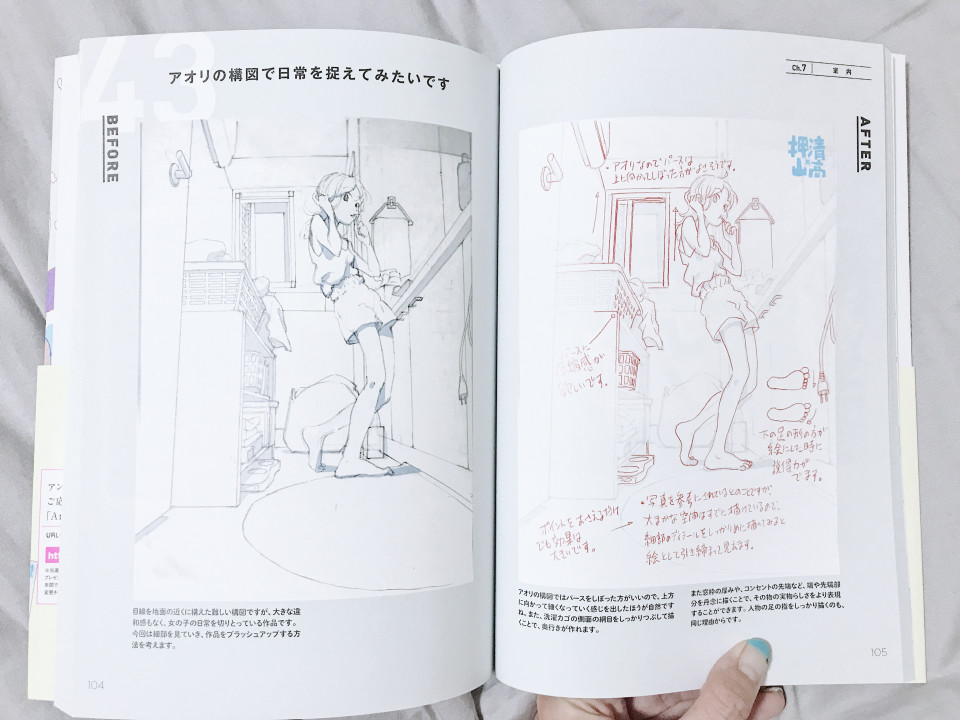 43
アオリの構図で日常を捉えてみたいです
BEFORE
目線を地面の近くに構えた難しい構図ですが、大きな違
和感もなく、女の子の日常を切りとっている作品です。
今回は細部を見ていき、作品をブラッシュアップする方
法を考えます。
104
アン
ご応
「An
URL
htt
Ch.7
室内
AFTER
押漬
山高
・アオリなのでパースは
上に向かってしぼった方がよさそうです。
感が
ほしいです。
下の足の形の方が
絵にした時に
説得力が
でます。
ポイントをおさえるだけ
でも効果は
大きいです。
・写真を参考にされているとのことですが、
大まかな空間はすでに描けているので、
細部のディテールをしっかりめに描いてみると
絵として引き締まって見えます。
アオリの構図ではパースをしぼった方がいいので、上方
に向かって細くなっていく感じを出したほうが自然です
ね。また、洗濯カゴの側面の網目をしっかりつぶして描
くことで、奥行きが作れます。
また窓枠の厚みや、コンセントの先端など、端や先端部
分を丹念に描くことで、その物の実物らしさをより表現
することができます。人物の足の指をしっかり描くのも、
同じ理由からです。
105